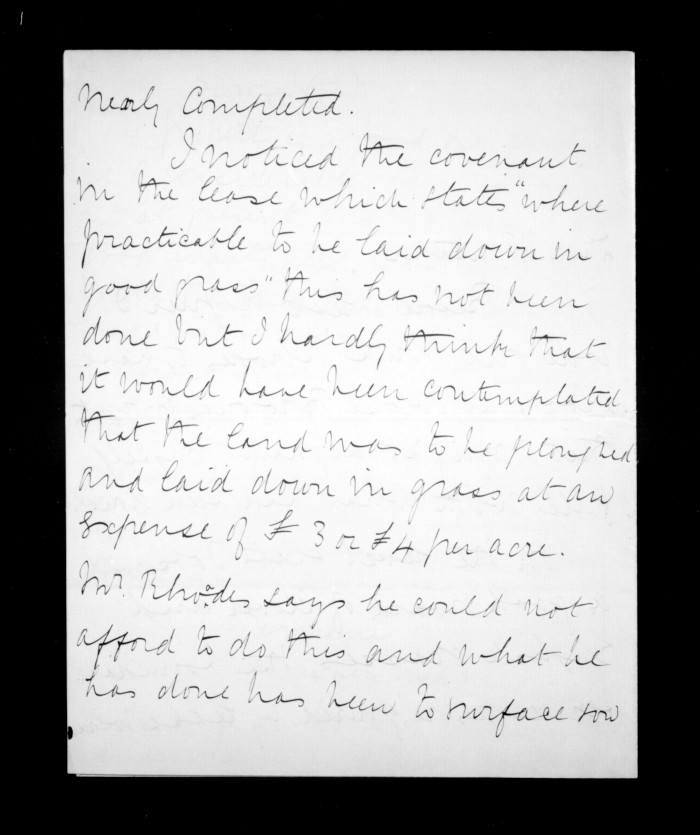 nearly completed.
I noticed the covenant
in the lease which states "where
practicable to be laid down in
good grass" this has not been
done but I hardly think that
it would have been contemplated
that the land was to be ploughed
and laid down in grass at an
expense of £3 or £4 per acre.
Mr. Rhodes says he could not
afford to do this and what he
has done has been to surface sow